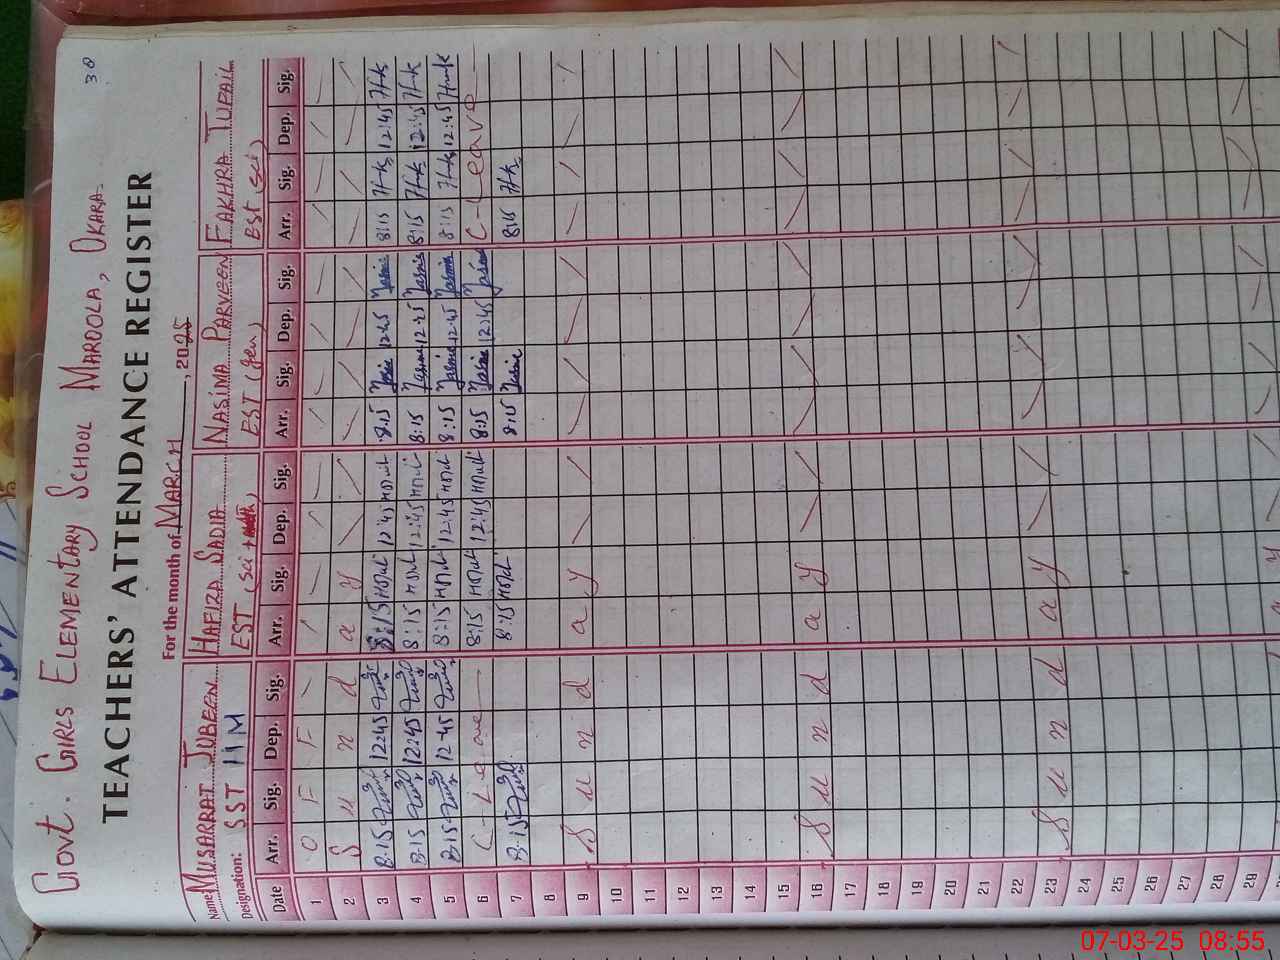 38
Govt. Girls Elementary School Maroola, Okara.
TEACHERS' ATTENDANCE REGISTER
For the month of MARCH, 2025
Name MUSARRAT JUBEEN HAFIZA SADIA NASIMA PARVEEN FAKHRA TUFAIL
Designation: SST IIM EST (Sci + EST (gen) EST (Sci)
Date Arr. Sig. Dep. Sig. Arr. Sig. Dep. Sig. Arr. Sig. Dep. Sig. Arr. Sig. Dep. Sig.
1 O F F
2 S u n d a y
3 8:15 12:45 8:15 12:45 8:15 12:45 8:15 12:45
4 8:15 12:45 8:15 12:45 8:15 12:45 8:15 12:45
5 8:15 12:45 8:15 12:45 8:15 12:45 8:15 12:45
6 C-Leave 8:15 12:45 8:15 12:45 C-Leave
7 8:15 8:15 8:15 8:15
8
9 S u n d a y
10
11
12
13
14
15
16 S u n d a y
17
18
19
20
21
22
23 S u n d a y
24
25
26
27
28
29
07-03-25 08:55